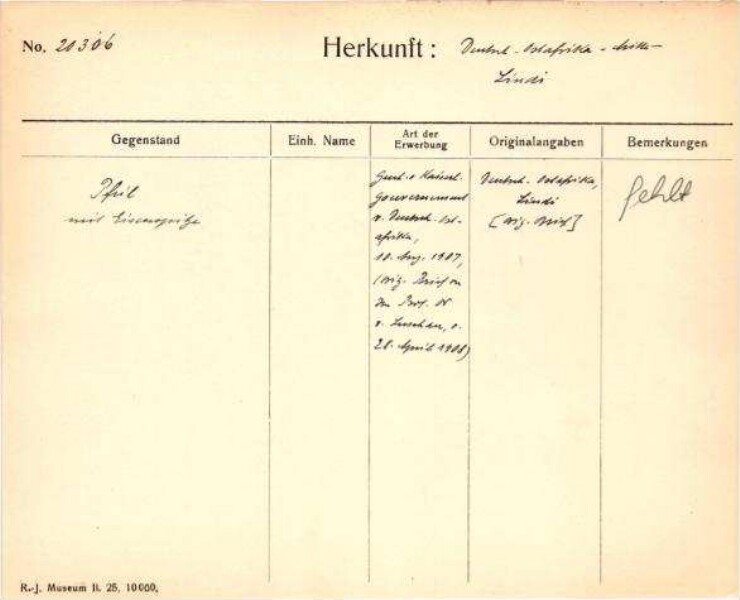 No. 20306
Herkunft: Deutsch-Ostafrika -
Lindi
Gegenstand
Einh. Name
Art der
Erwerbung
Originalangaben
Bemerkungen
Pfeil
mit Eisenspitze
Kaiserl.
Gouvernement
v. Deutsch-Ost-
afrika,
10. Aug. 1907,
(orig. Brief an
den Prof. Dr
v. Luschan, v.
28. April 1908)
Deutsch-Ostafrika,
Lindi
[orig. Brief]
Fehlt
R.-J. Museum B. 25, 10000,